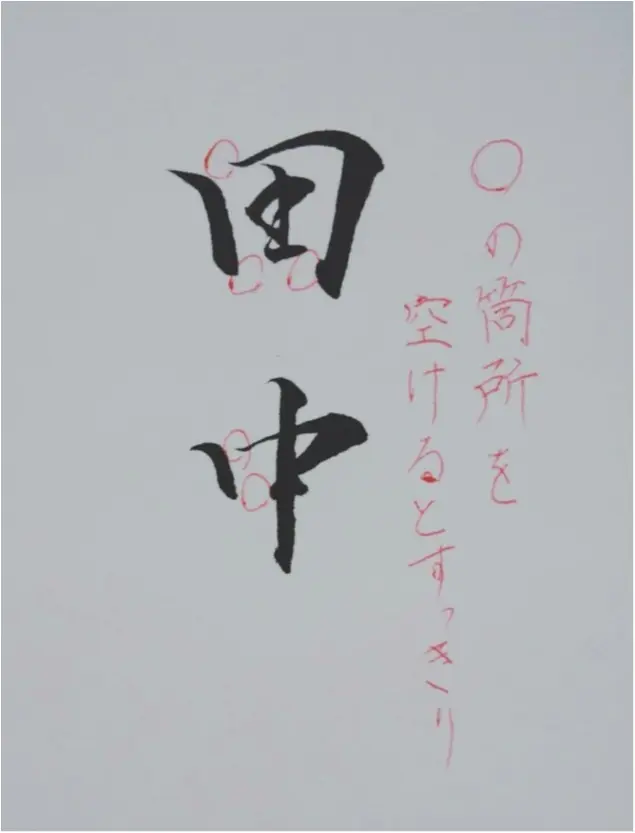 ○の箇所を
空けるとすっきり
田中